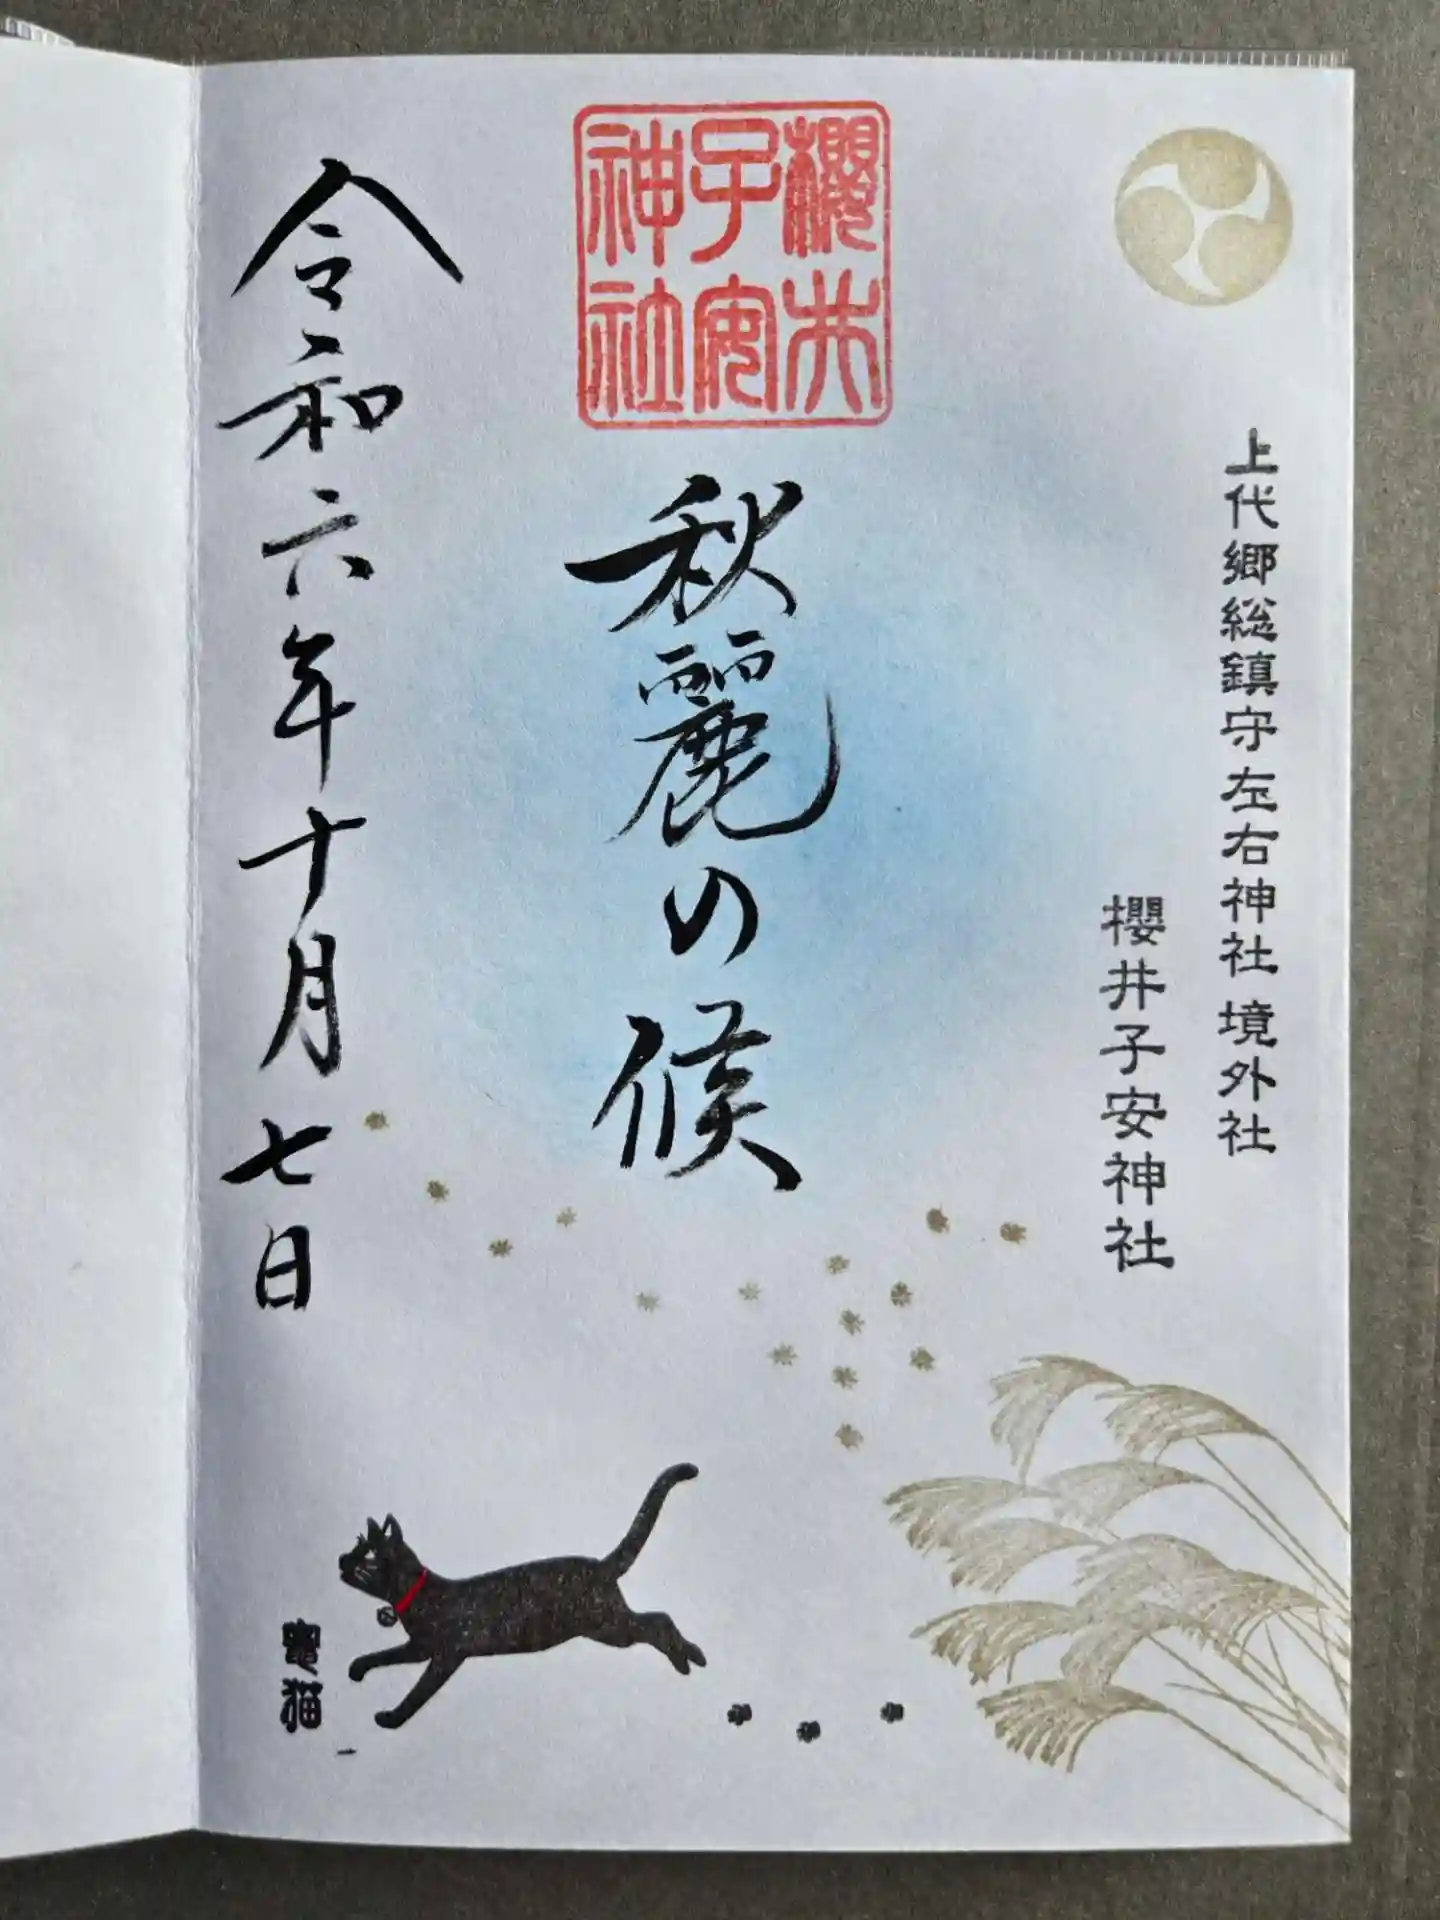 上代郷総鎮守左右神社 境外社
櫻井子安神社
櫻井
子安
神社
秋麗の候
令和六年十月七日
竈猫